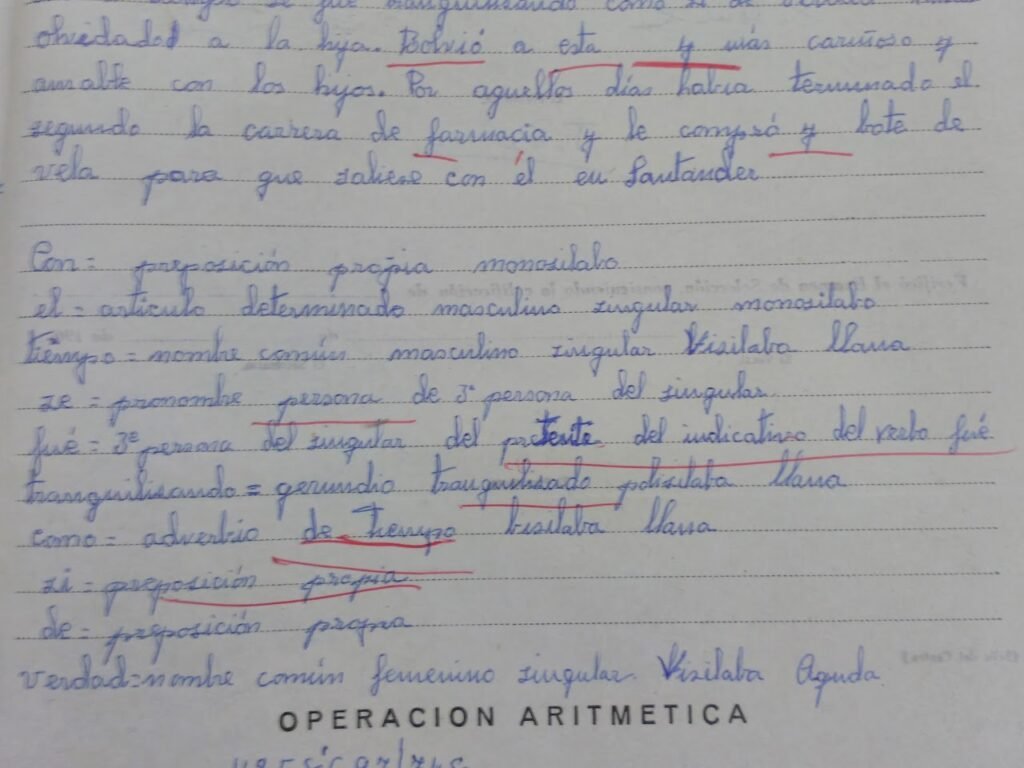 se fue tranquilisando como si de
olvidado a la hija. Bolvió a esta y más cariñoso y
amable con los hijos. Por aquellos días habia terminado el
segundo la carrera de farmacia y le compró y bote de
vela para que saliese con él en Santander
Con = preposición propia monosilabo
el = articulo determinado masculino singular monosilabo
tiempo = nombre común masculino singular Visilaba llana
se = pronombre persona de 3ª persona del singular
fué = 3ª persona del singular del del indicativo del verbo fué
tranquilisando = gerundio tranquilisado polisilaba llana
como = adverbio de tiempo bisilaba llana
si = preposición propia
de = preposición propia
verdad = nombre común femenino singular Visilaba Aguda
OPERACION ARITMETICA